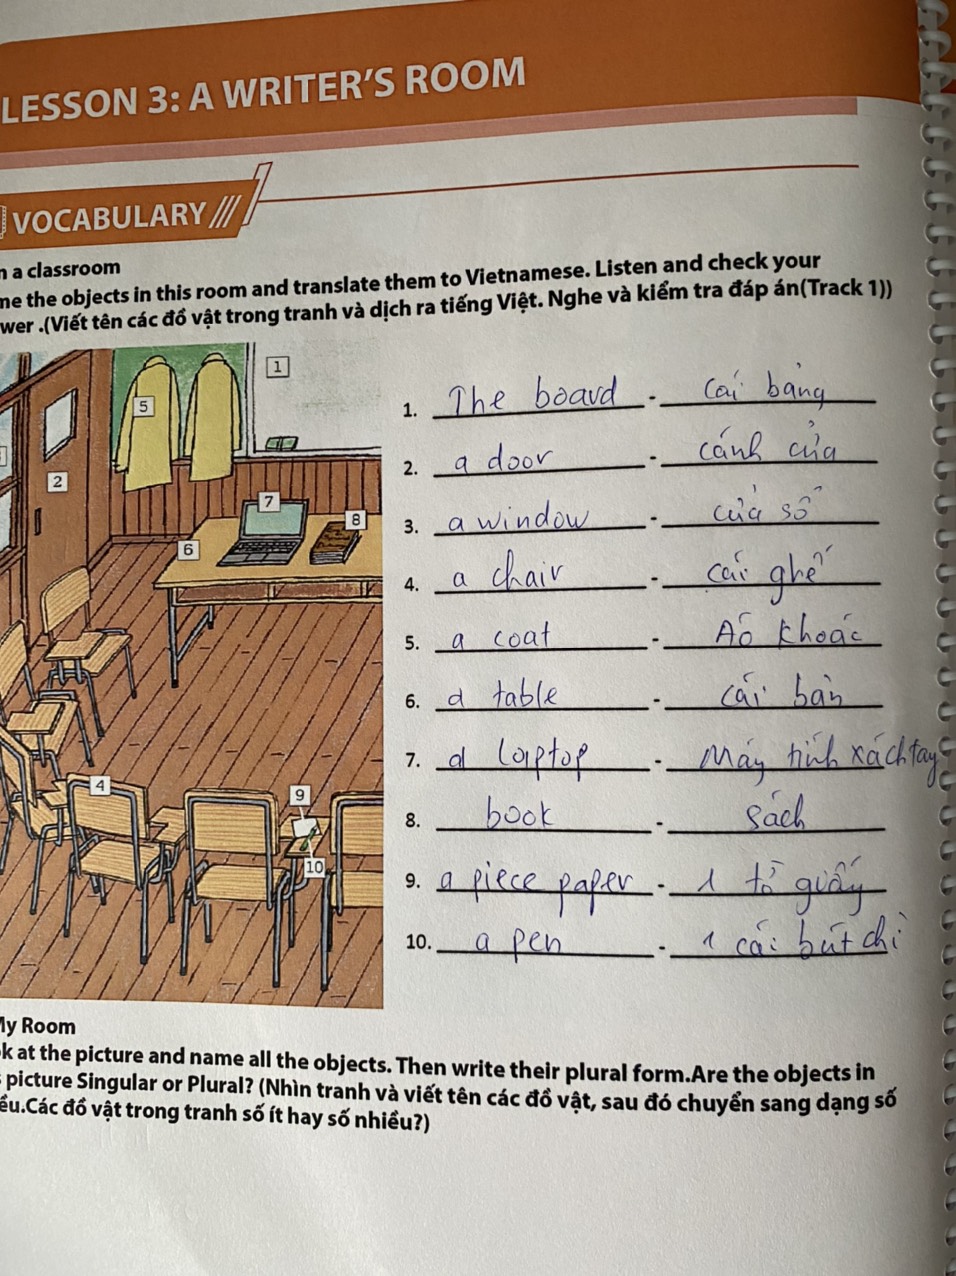 LESSON 3: A WRITER'S ROOM
VOCABULARY
n a classroom
me the objects in this room and translate them to Vietnamese. Listen and check your
wer .(Viết tên các đồ vật trong tranh và dịch ra tiếng Việt. Nghe và kiểm tra đáp án(Track 1))
1
5
2
7
8
6
4
9
10
1. The board - Cái bảng
2. a door - cánh cửa
3. a window - cửa sổ
4. a chair - cái ghế
5. a coat - Aó khoác
6. a table - cái bàn
7. a laptop - Máy tính xách tay
8. book - sách
9. a piece paper - 1 tờ giấy
10. a pen - 1 cái bút chì
My Room
k at the picture and name all the objects. Then write their plural form.Are the objects in
s picture Singular or Plural? (Nhìn tranh và viết tên các đồ vật, sau đó chuyển sang dạng số
ều.Các đồ vật trong tranh số ít hay số nhiều?)